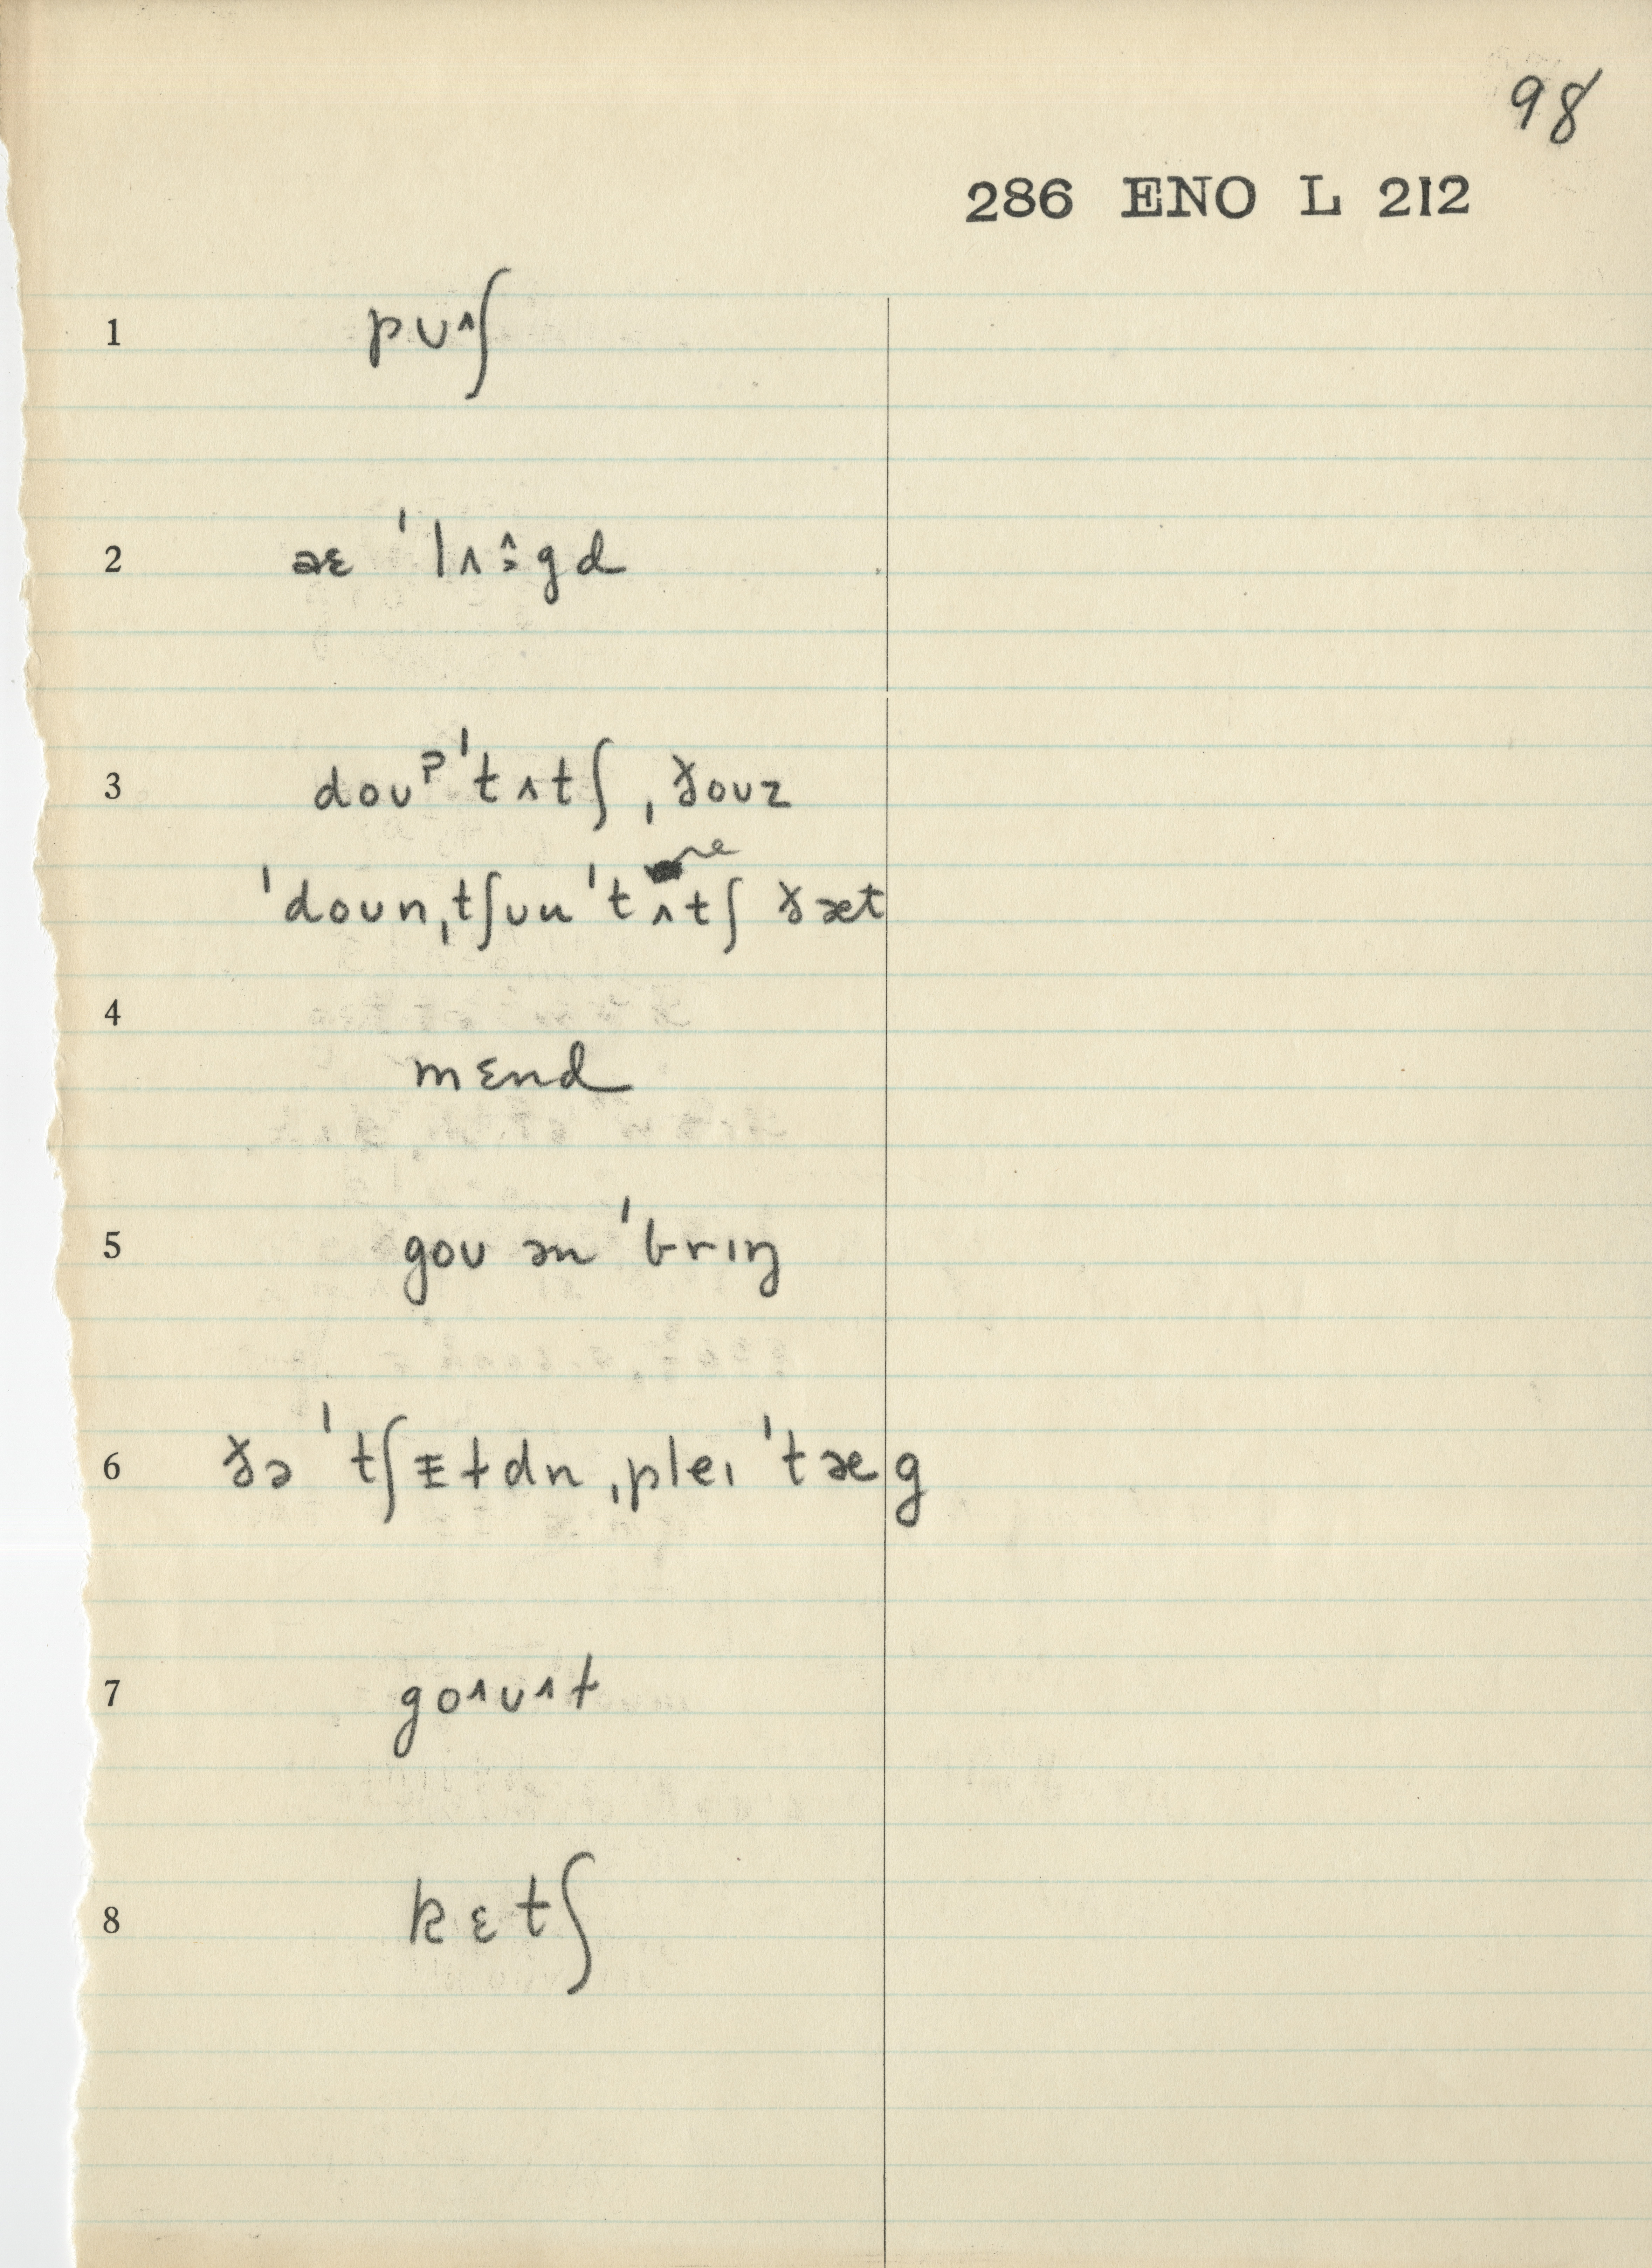 98
286 ENO L 212
1 pʊ˄ʃ
2 aɛ ˈlʌ˄ːgd
3 doʊˀ ˈtʌtʃ ˌðoʊz
ˈdoʊn ˌtʃʊu ˈtʌtʃ ðæt
4 mɛnd
5 goʊ ən ˈbrɪŋ
6 ðə ˈtʃɪɫdn ˌpleɪ ˈtæg
7 go˄ʊ˄t
8 kɛtʃ